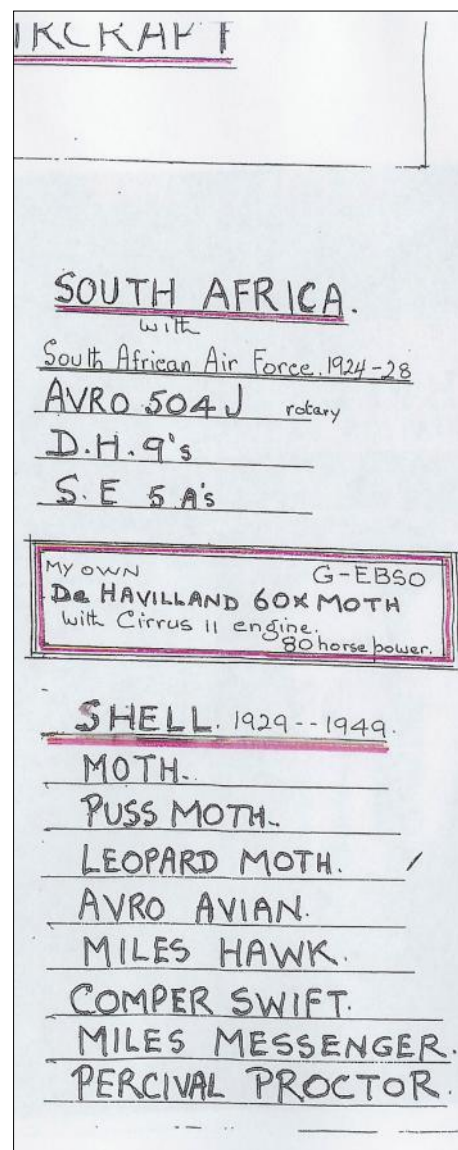 IRCRAFT
SOUTH AFRICA.
with
South African Air Force. 1924-28
AVRO 504 J rotary
D.H. 9's
S.E 5 A's
MY OWN G-EBSO
De HAVILLAND 60X MOTH
with Cirrus 11 engine.
80 horse power.
SHELL. 1929--1949.
MOTH.
PUSS MOTH.
LEOPARD MOTH.
AVRO AVIAN.
MILES HAWK.
COMPER SWIFT.
MILES MESSENGER.
PERCIVAL PROCTOR.